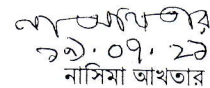 না আখতার
১৯.০৭.২১
নাসিমা আখতার